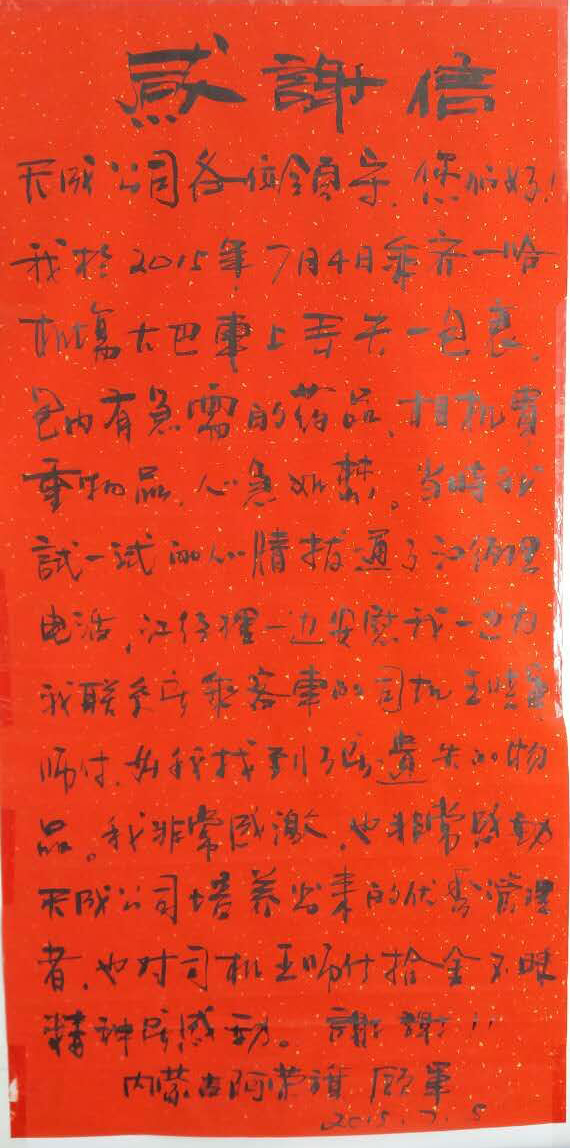 感謝信
天成公司各位領导.您们好!
我於2015年7月4日乘齐一哈
机塲大巴車上丟失一包裹.
包内有急需的药品.相机貴
重物品.心急如焚。当時我
試一试的心情拔通了江经理
电话,江经理一边安慰我一边为
我联系所乘客車的司机王
师付.为我找到了所遗失的物
品。我非常感激.也非常感動
天成公司培养出来的优秀管理
者.也对司机王师付拾金不昧
精神所感动。謝謝!!
内蒙古阿荣旗 顧軍
2015.7.5